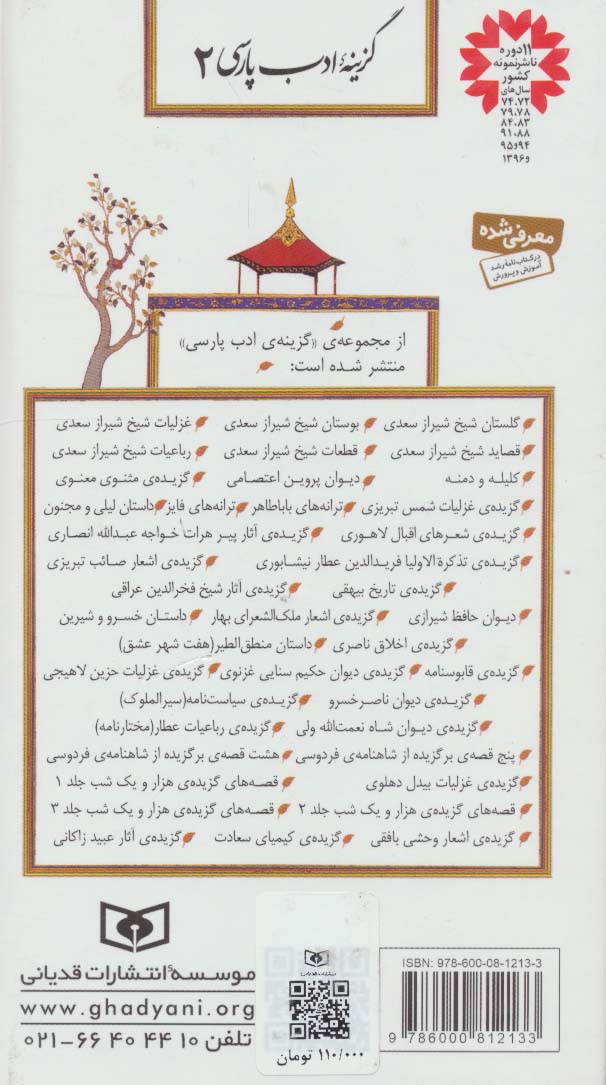 گزینهٔ ادب پارسی ۲
۱۱ دوره
ناشر نمونه
کشور
سال‌های
۷۴،۷۲
۷۹،۷۸
۸۴،۸۳
۹۱،۸۸
۹۴و۹۵
و۱۳۹۶
معرفی شده
در کتاب‌نامهٔ رشد
آموزش و پرورش
از مجموعه‌ی «گزینه‌ی ادب پارسی»
منتشر شده است:
گلستان شیخ شیراز سعدی بوستان شیخ شیراز سعدی غزلیات شیخ شیراز سعدی
قصاید شیخ شیراز سعدی قطعات شیخ شیراز سعدی رباعیات شیخ شیراز سعدی
کلیله و دمنه دیوان پروین اعتصامی گزیده‌ی مثنوی معنوی
گزیده‌ی غزلیات شمس تبریزی ترانه‌های باباطاهر ترانه‌های فایز داستان لیلی و مجنون
گزیده‌ی شعرهای اقبال لاهوری گزیده‌ی آثار پیر هرات خواجه عبدالله انصاری
گزیده‌ی تذکرة الاولیا فریدالدین عطار نیشابوری گزیده‌ی اشعار صائب تبریزی
گزیده‌ی تاریخ بیهقی گزیده‌ی آثار شیخ فخرالدین عراقی
دیوان حافظ شیرازی گزیده‌ی اشعار ملک‌الشعرای بهار داستان خسرو و شیرین
گزیده‌ی اخلاق ناصری داستان منطق‌الطیر(هفت شهر عشق)
گزیده‌ی قابوسنامه گزیده‌ی دیوان حکیم سنایی غزنوی گزیده‌ی غزلیات حزین لاهیجی
گزیده‌ی دیوان ناصرخسرو گزیده‌ی سیاست‌نامه(سیرالملوک)
گزیده‌ی دیوان شاه نعمت‌الله ولی گزیده‌ی رباعیات عطار(مختارنامه)
پنج قصه‌ی برگزیده از شاهنامه‌ی فردوسی هشت قصه‌ی برگزیده از شاهنامه‌ی فردوسی
گزیده‌ی غزلیات بیدل دهلوی قصه‌های گزیده‌ی هزار و یک شب جلد ۱
قصه‌های گزیده‌ی هزار و یک شب جلد ۲ قصه‌های گزیده‌ی هزار و یک شب جلد ۳
گزیده‌ی اشعار وحشی بافقی گزیده‌ی کیمیای سعادت گزیده‌ی آثار عبید زاکانی
موسسهٔ انتشارات قدیانی
www.ghadyani.org
تلفن ۱۰ ۴۴ ۴۰ ۶۶-۰۲۱
۱۱۰/۰۰۰ تومان
ISBN: 978-600-08-1213-3
9 786000 812133